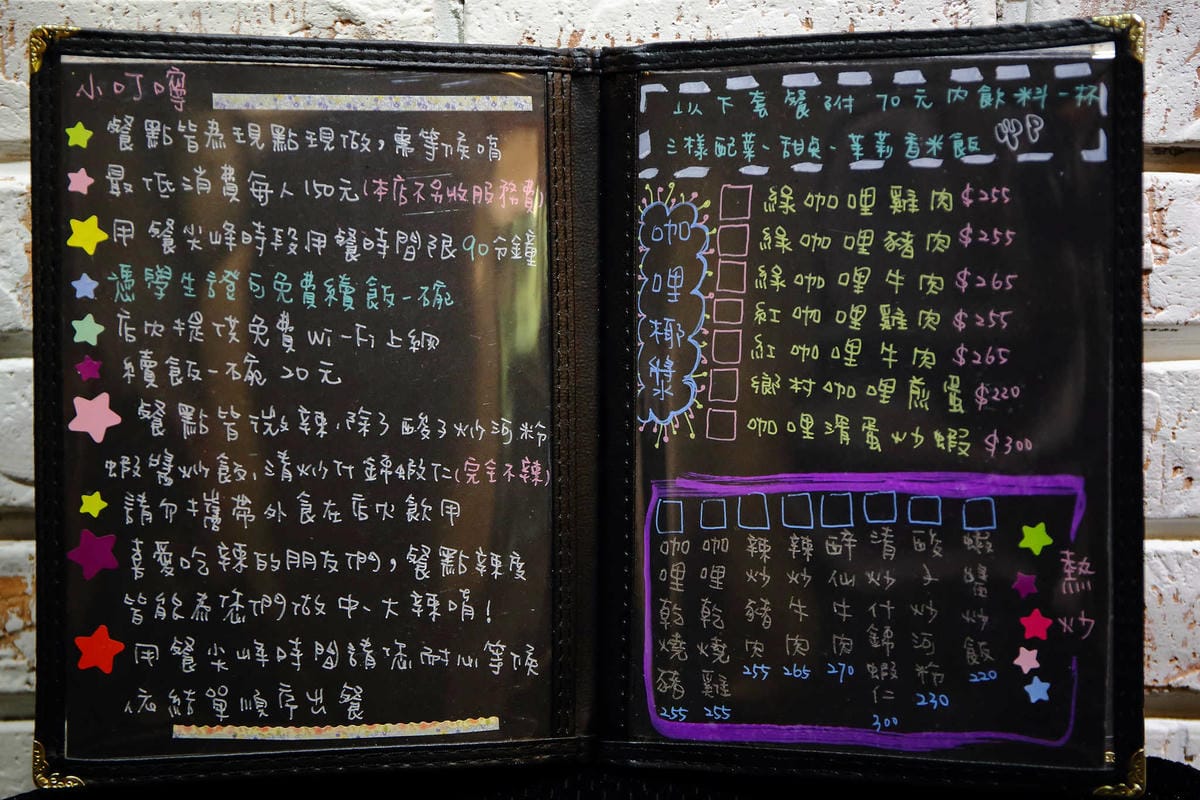 小叮嚀
餐點皆為現點現做,需等候唷
最低消費每人150元(本店不另收服務費)
用餐尖峰時段用餐時間限90分鐘
憑學生證可免費續飯一碗
店內提供免費Wi-Fi上網
續飯一碗20元
餐點皆微辣,除了酸子炒河粉
蝦醬炒飯、清炒什錦蝦仁(完全不辣)
請勿攜帶外食在店內飲用
喜愛吃辣的朋友們,餐點辣度
皆能為您們做中、大辣唷!
用餐尖峰時間請您耐心等候
依結單順序出餐
以下套餐附70元內飲料一杯
三樣配菜、甜臭、茉莉香米飯
咖哩椰漿
綠咖哩雞肉$255
綠咖哩豬肉$255
綠咖哩牛肉$265
紅咖哩雞肉$255
紅咖哩牛肉$265
鄉村咖哩煎蛋$220
咖哩滑蛋炒蝦$300
熱炒
咖哩乾燒豬255
咖哩乾燒雞255
辣炒豬肉255
辣炒牛肉265
醉仙牛肉270
清炒什錦蝦仁300
酸子炒河粉230
蝦醬炒飯220